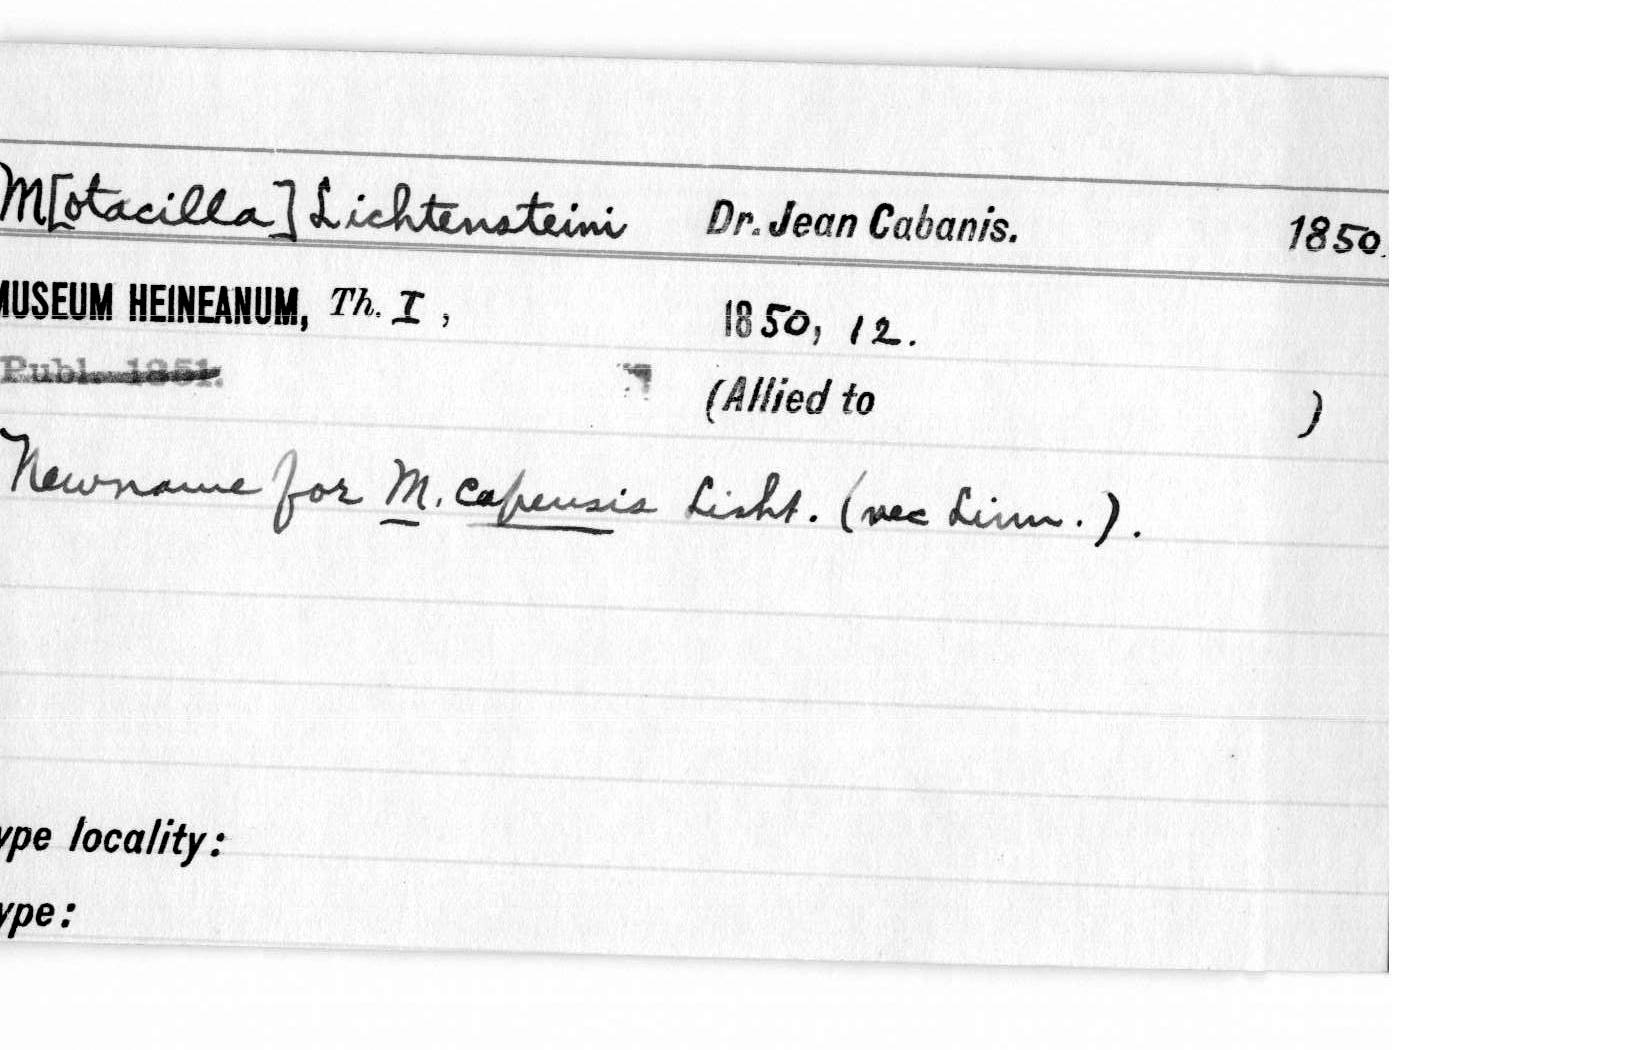 M[otacilla] Lichtensteini Dr. Jean Cabanis. 1850.
MUSEUM HEINEANUM, Th. I, 1850, 12.
Publ. 1851. (Allied to )
Newname for M. capensis Licht. (nec Linn.).
ype locality:
ype: